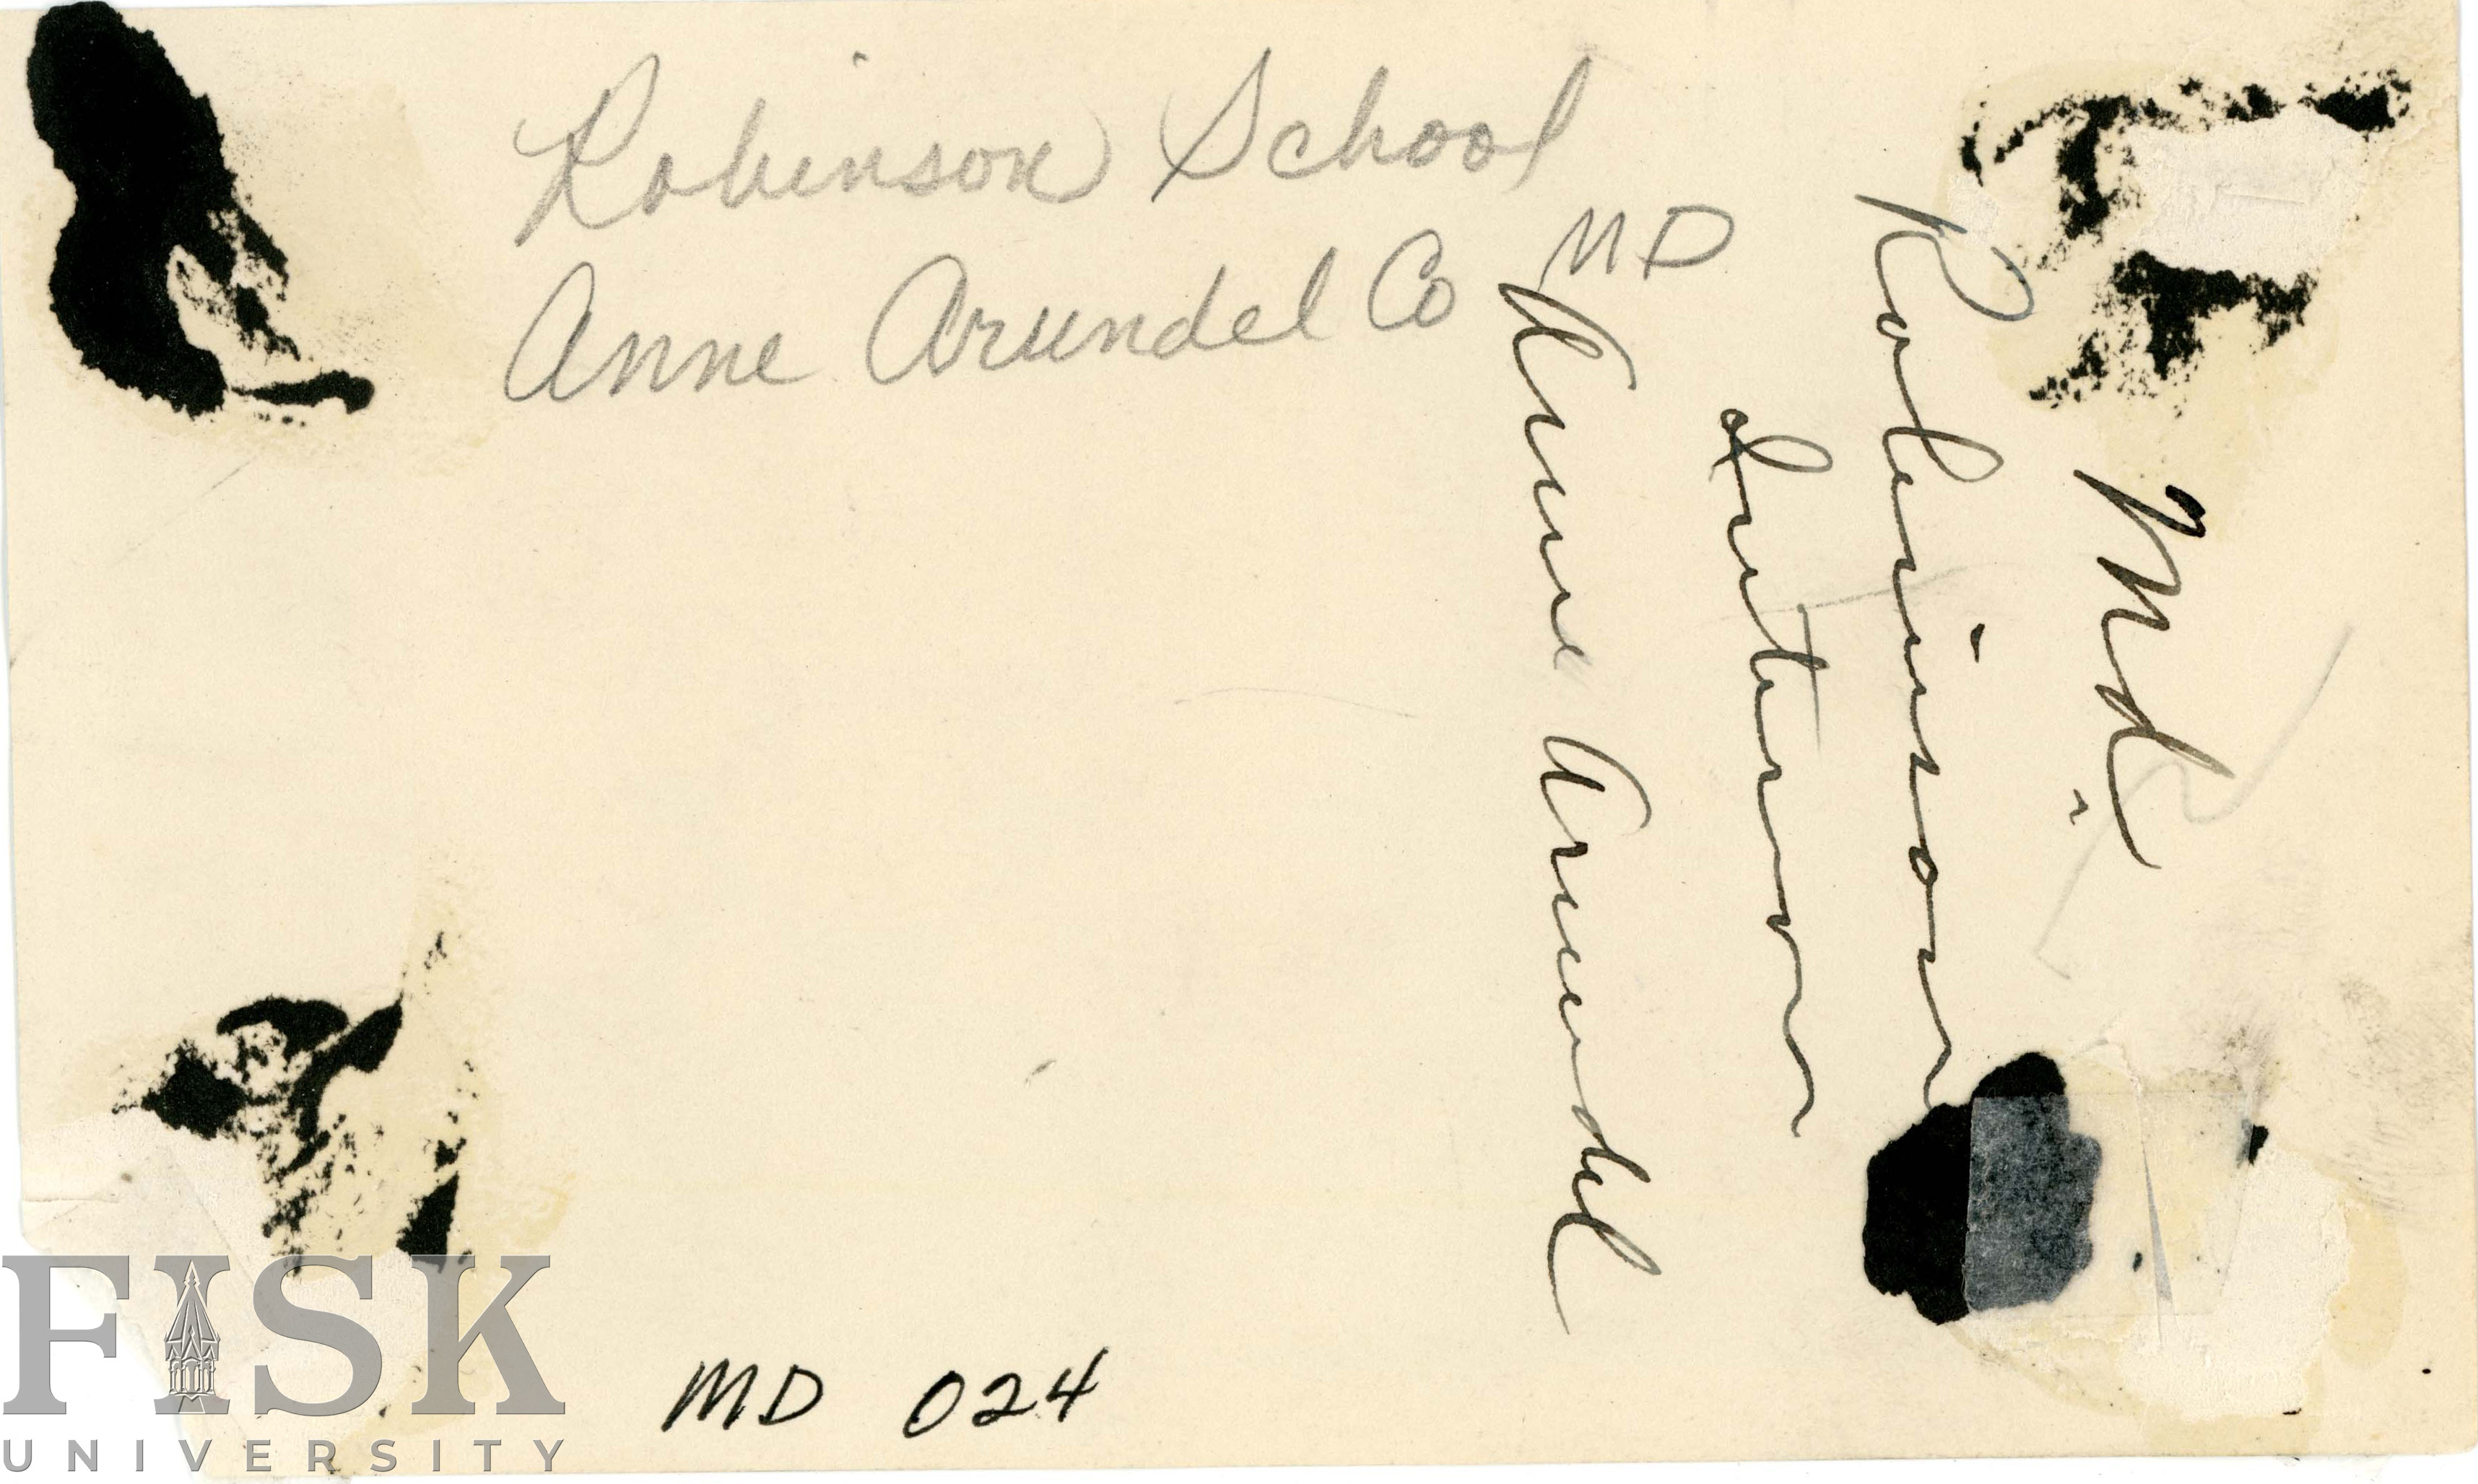 Robinson School
MD
Anne Arundel Co
Md.
Robinson
Interior
Anne Arundel
MD 024
FISK
UNIVERSITY